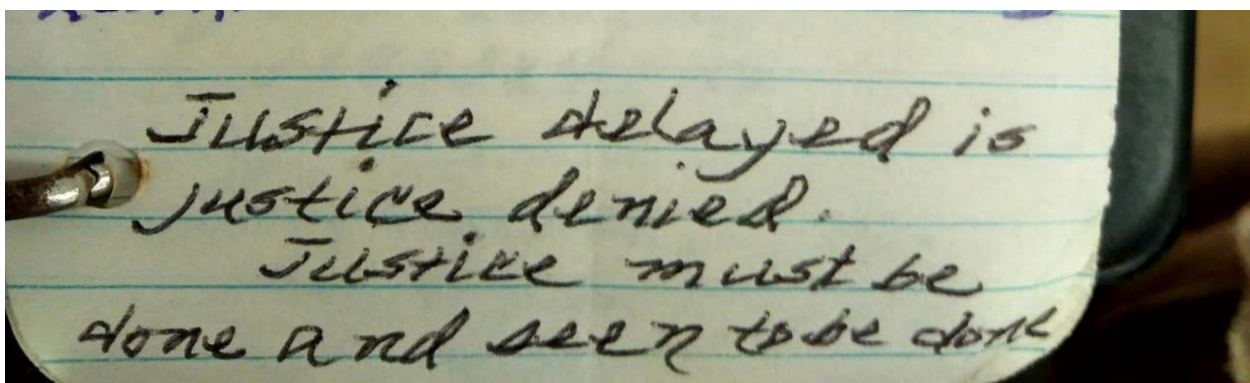 Justice delayed is
justice denied.
Justice must be
done and seen to be done